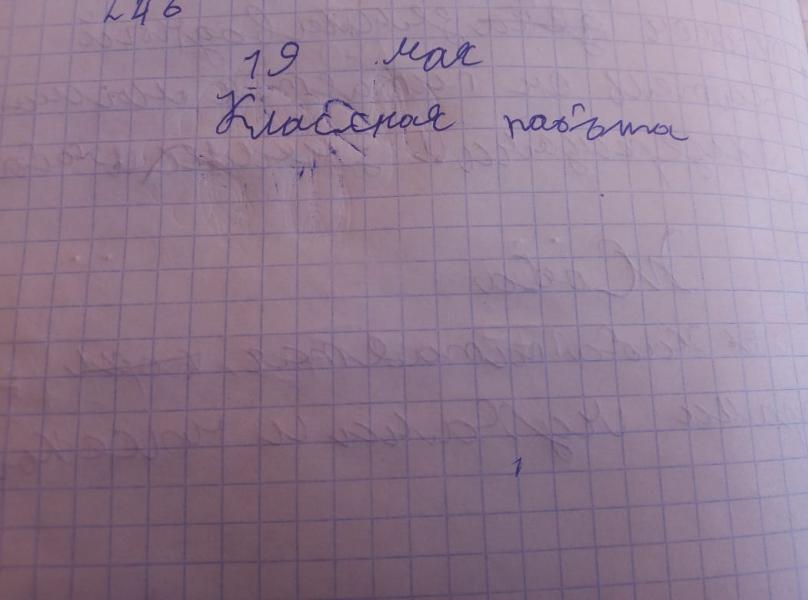 246
19 мая
Классная работа